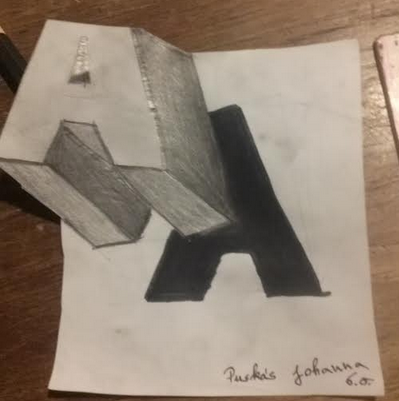 A
Purkás Johanna
6.a.